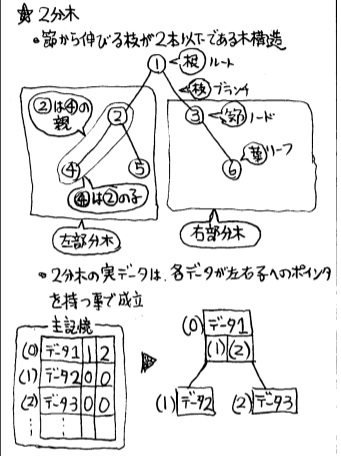 ☆2分木
・節から伸びる枝が2本以下である木構造
① 根 ルート
枝 ブランチ
②は④の
親
② ③ 節 ノード
④ ⑤ ⑥ 葉 リーフ
④は②の子
左部分木 右部分木
・2分木の実データは、各データが左右子へのポインタ
を持つ事で成立
主記憶
(0) データ1 1 2
(1) データ2 0 0
(2) データ3 0 0
(0) データ1
(1) (2)
(1) データ2 (2) データ3